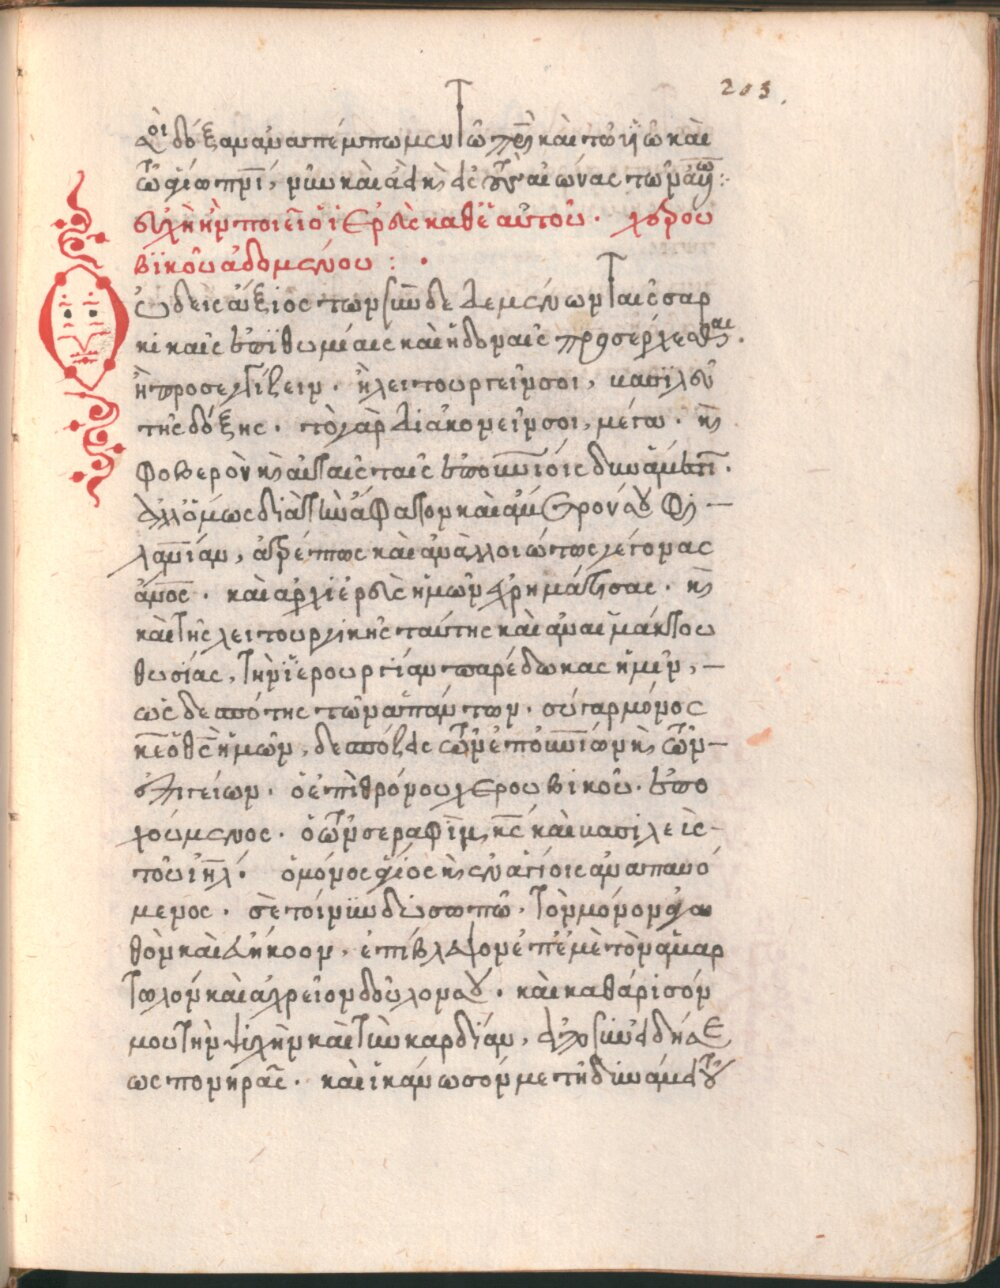 203.
σοι δόξαν ἀναπέμπωμεν τῶ πρὶ καὶ τῶ υἱῶ καὶ
τῶ ἁγίω πνι, νῦν καὶ ἀεὶ κ εἰς τοὺς αἰώνας των αἰώ:
εὐχὴ ἣν ποιεῖ ὁ ἱερεὺς καθ' ἑαυτοῦ. χερου
βϊκοῦ ἀδομένου:.
Οὐδεὶς ἄξιος των συνδεδεμένων ταῖς σαρ
κικαῖς ἐπϊθυμίαις καὶ ἡδοναῖς προσέρχεσθαι.
ἢ προσεγγίζειν. ἢ λειτουργεῖν σοι, βασιλεῦ
τῆς δόξης. τὸ γὰρ διακονεῖν σοι, μέγα. κ
φοβερὸν κ αὐταῖς ταῖς ἐπουνίοις δυνάμεσι.
ἀλλ' ὅμως διὰ τὴν ἄφατον καὶ ἀμέτρον σου φι
λανίαν, ἀτρέπτως καὶ ἀναλλοιώτως γέγονας
ἄνος. καὶ ἀρχιερεὺς ἡμῶν χρηματίσας. κ
καὶ τῆς λειτουργικῆς ταύτης καὶ ἀναιμάκτου
θυσίας, τὴν ἱερουργίαν παρέδωκας ἡμῖν,
ὡς δεσπότης τῶν ἁπάντων. σὺ γὰρ μόνος
κε ὁ θς ἡμῶν, δεσπόζεις τῶν ἐπουνίων κ τῶν
ἐπιγείων. ὁ ἐπὶ θρόνου χερουβικοῦ. ἐπο
χούμενος. ὁ τῶν σεραφὶμ, κς καὶ βασιλεὶς
τοῦ ιηλ. ὁ μόνος ἅγιος κ ἐν ἁγίοις ἀναπαυό
μενος. σὲ τοίνϊν δυσωπῶ. τὸν μόνον ἀγα
θὸν καὶ εὐήκοον, ἐπίβλεψον ἐπ' ἐμὲ τὸν ἁμαρ
τωλόν καὶ ἀχρεῖον δοῦλον σου. καὶ καθάρισόν
μου τὴν ψιχὴν καὶ τὴν καρδίαν, ἀπὸ συνειδήσε
ως πονηρᾶς. καὶ ἱκάνωσόν με τῆ δυνάμει τοῦ